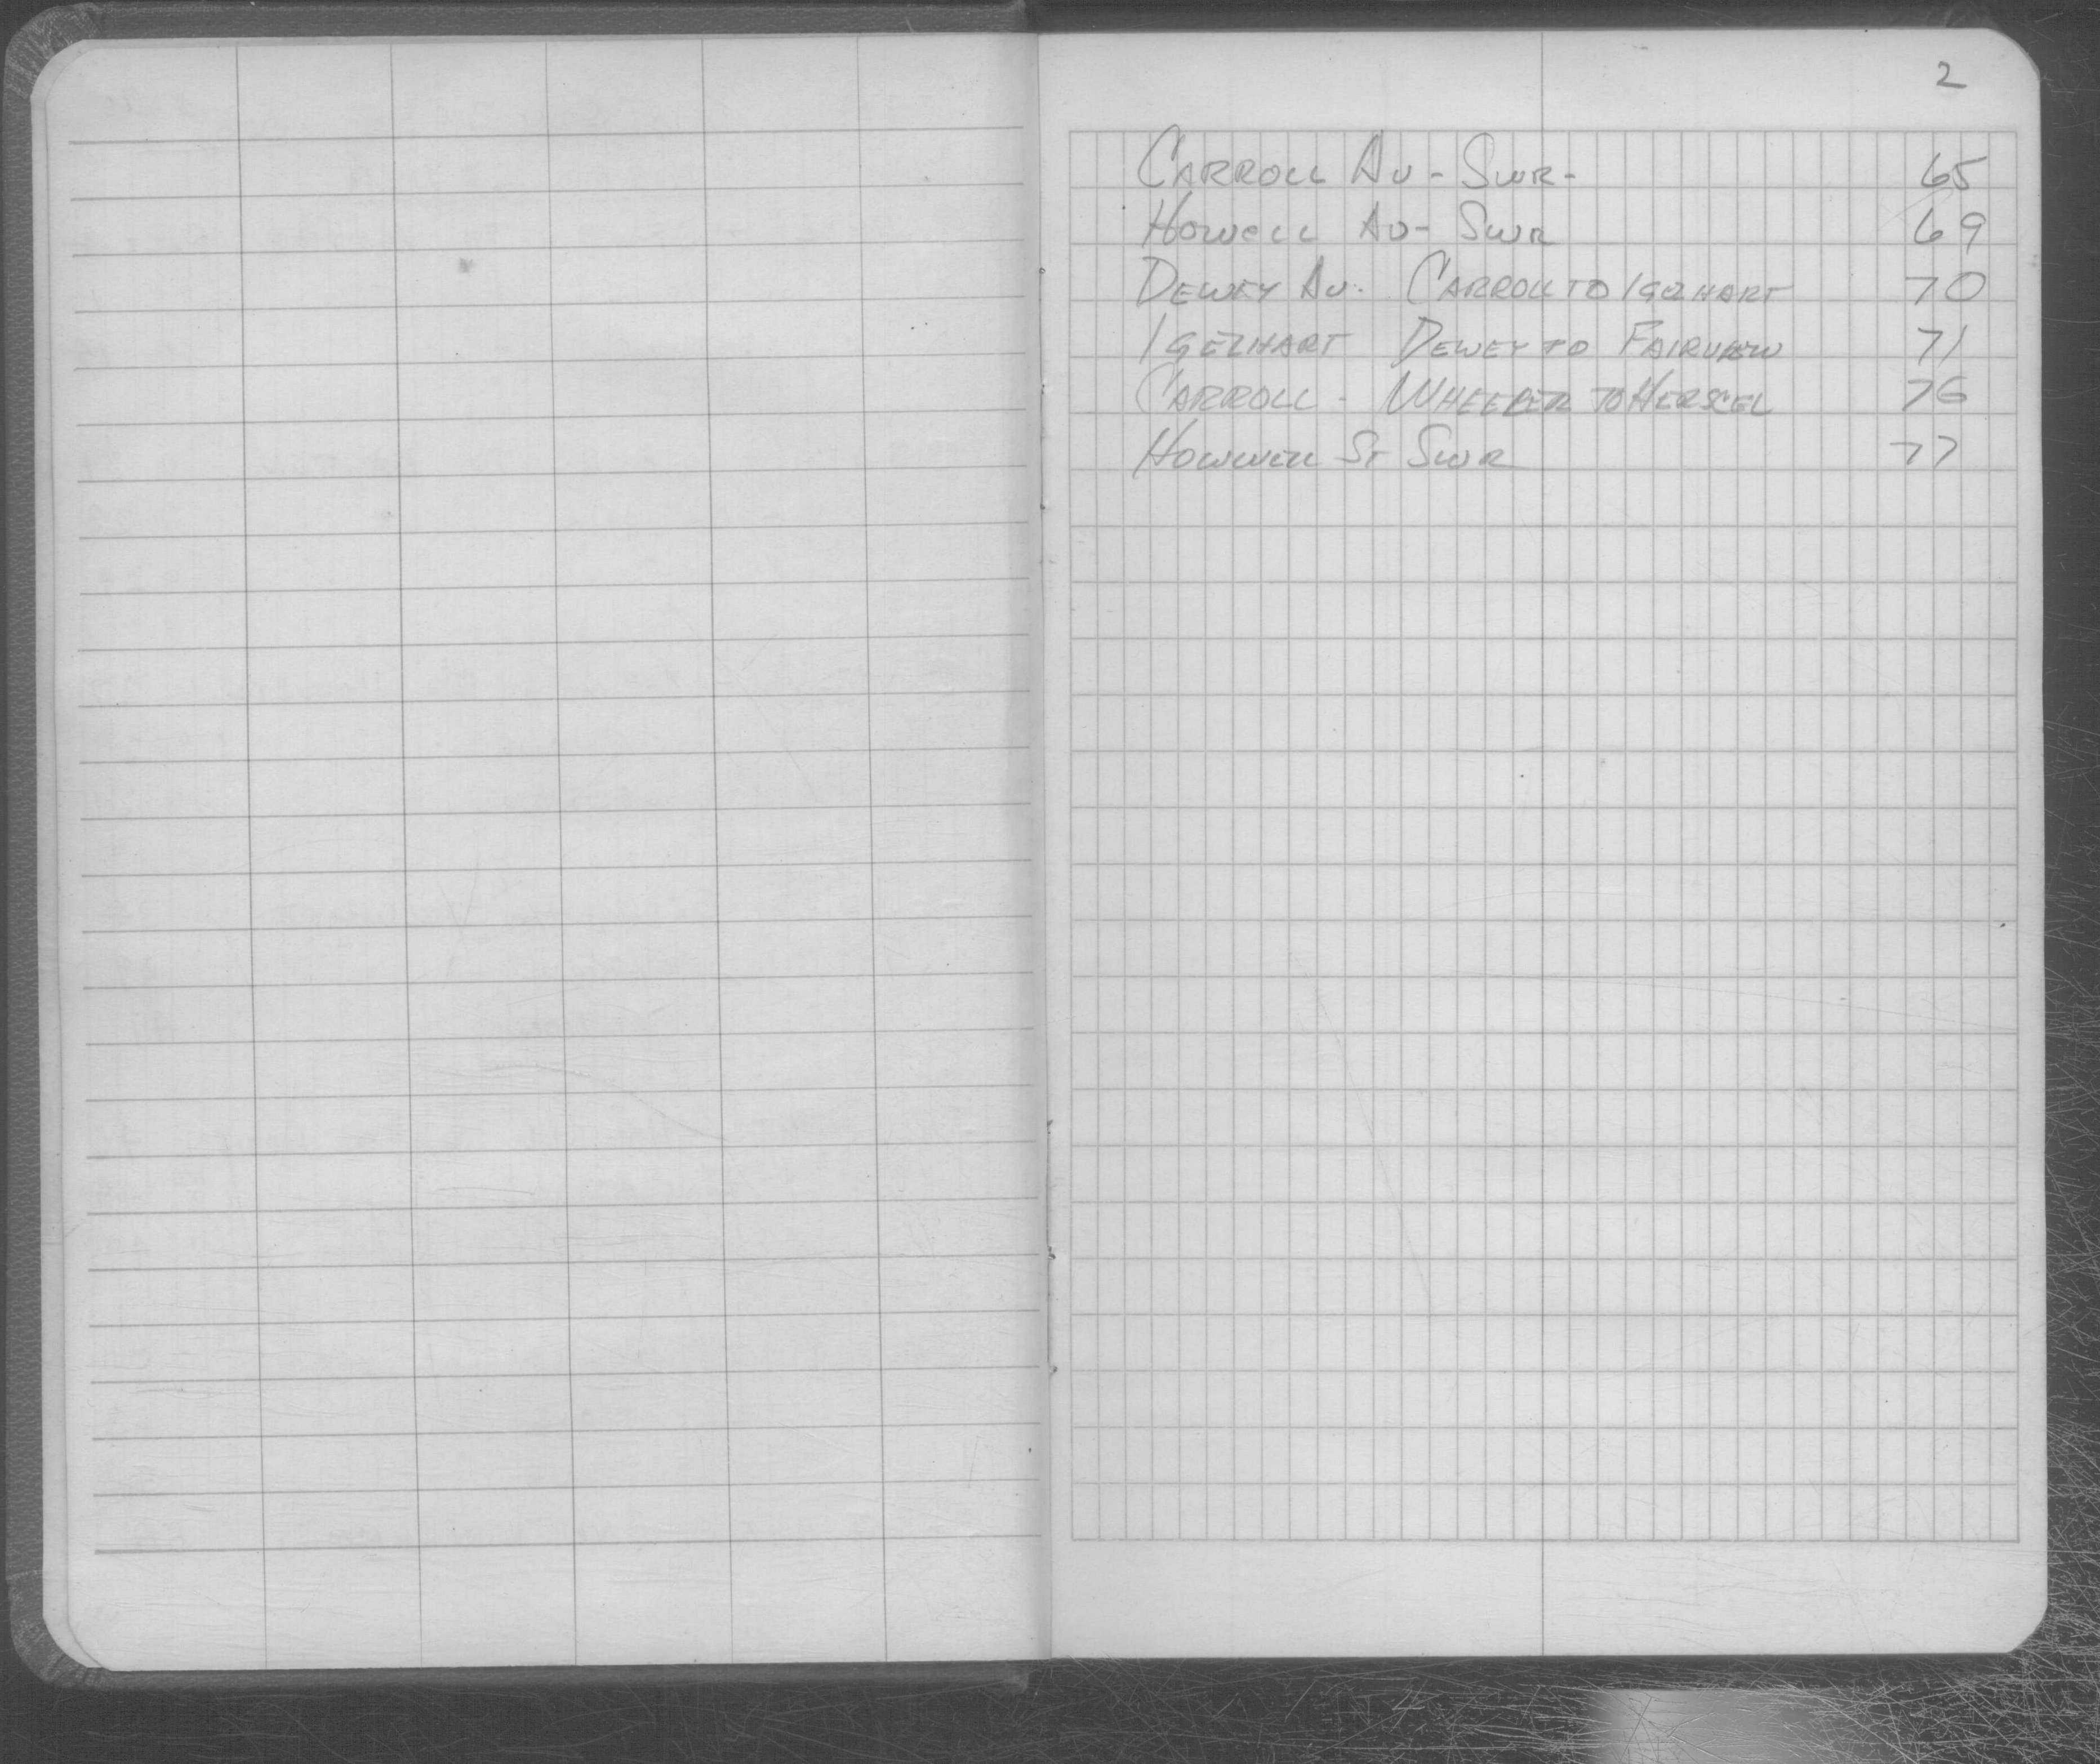 2
CARROLL AV - SWR - 65
HOWELL AV - SWR 69
DEWEY AV. CARROLL TO IGEHART 70
IGEEHART DEWEY TO FAIRVIEW 71
CARROLL - WHEELER TO HERSCEL 76
HOWWELL ST SWR 77